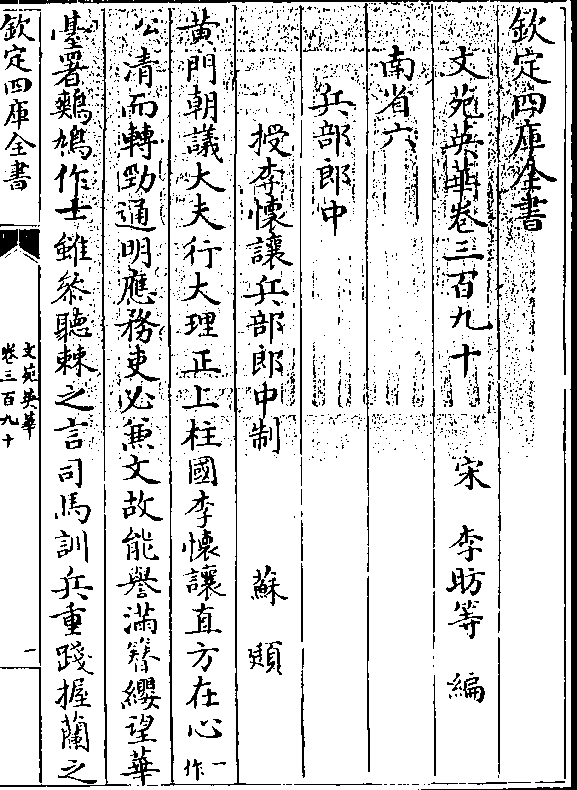 欽定四庫全書
文苑英華卷三百九十
宋 李昉等 編
南省六
兵部郎中
授李懷讓兵部郎中制 蘇頲
黄門朝議大夫行大理正上柱國李懷讓直方在心一作
公清而轉勁通明應務吏必兼文故能譽滿簪纓望華
臺署鷞鳩作士雖叅聽棘之言司馬訓兵重踐握蘭之
欽定四庫全書
文苑英華
卷三百九十
一